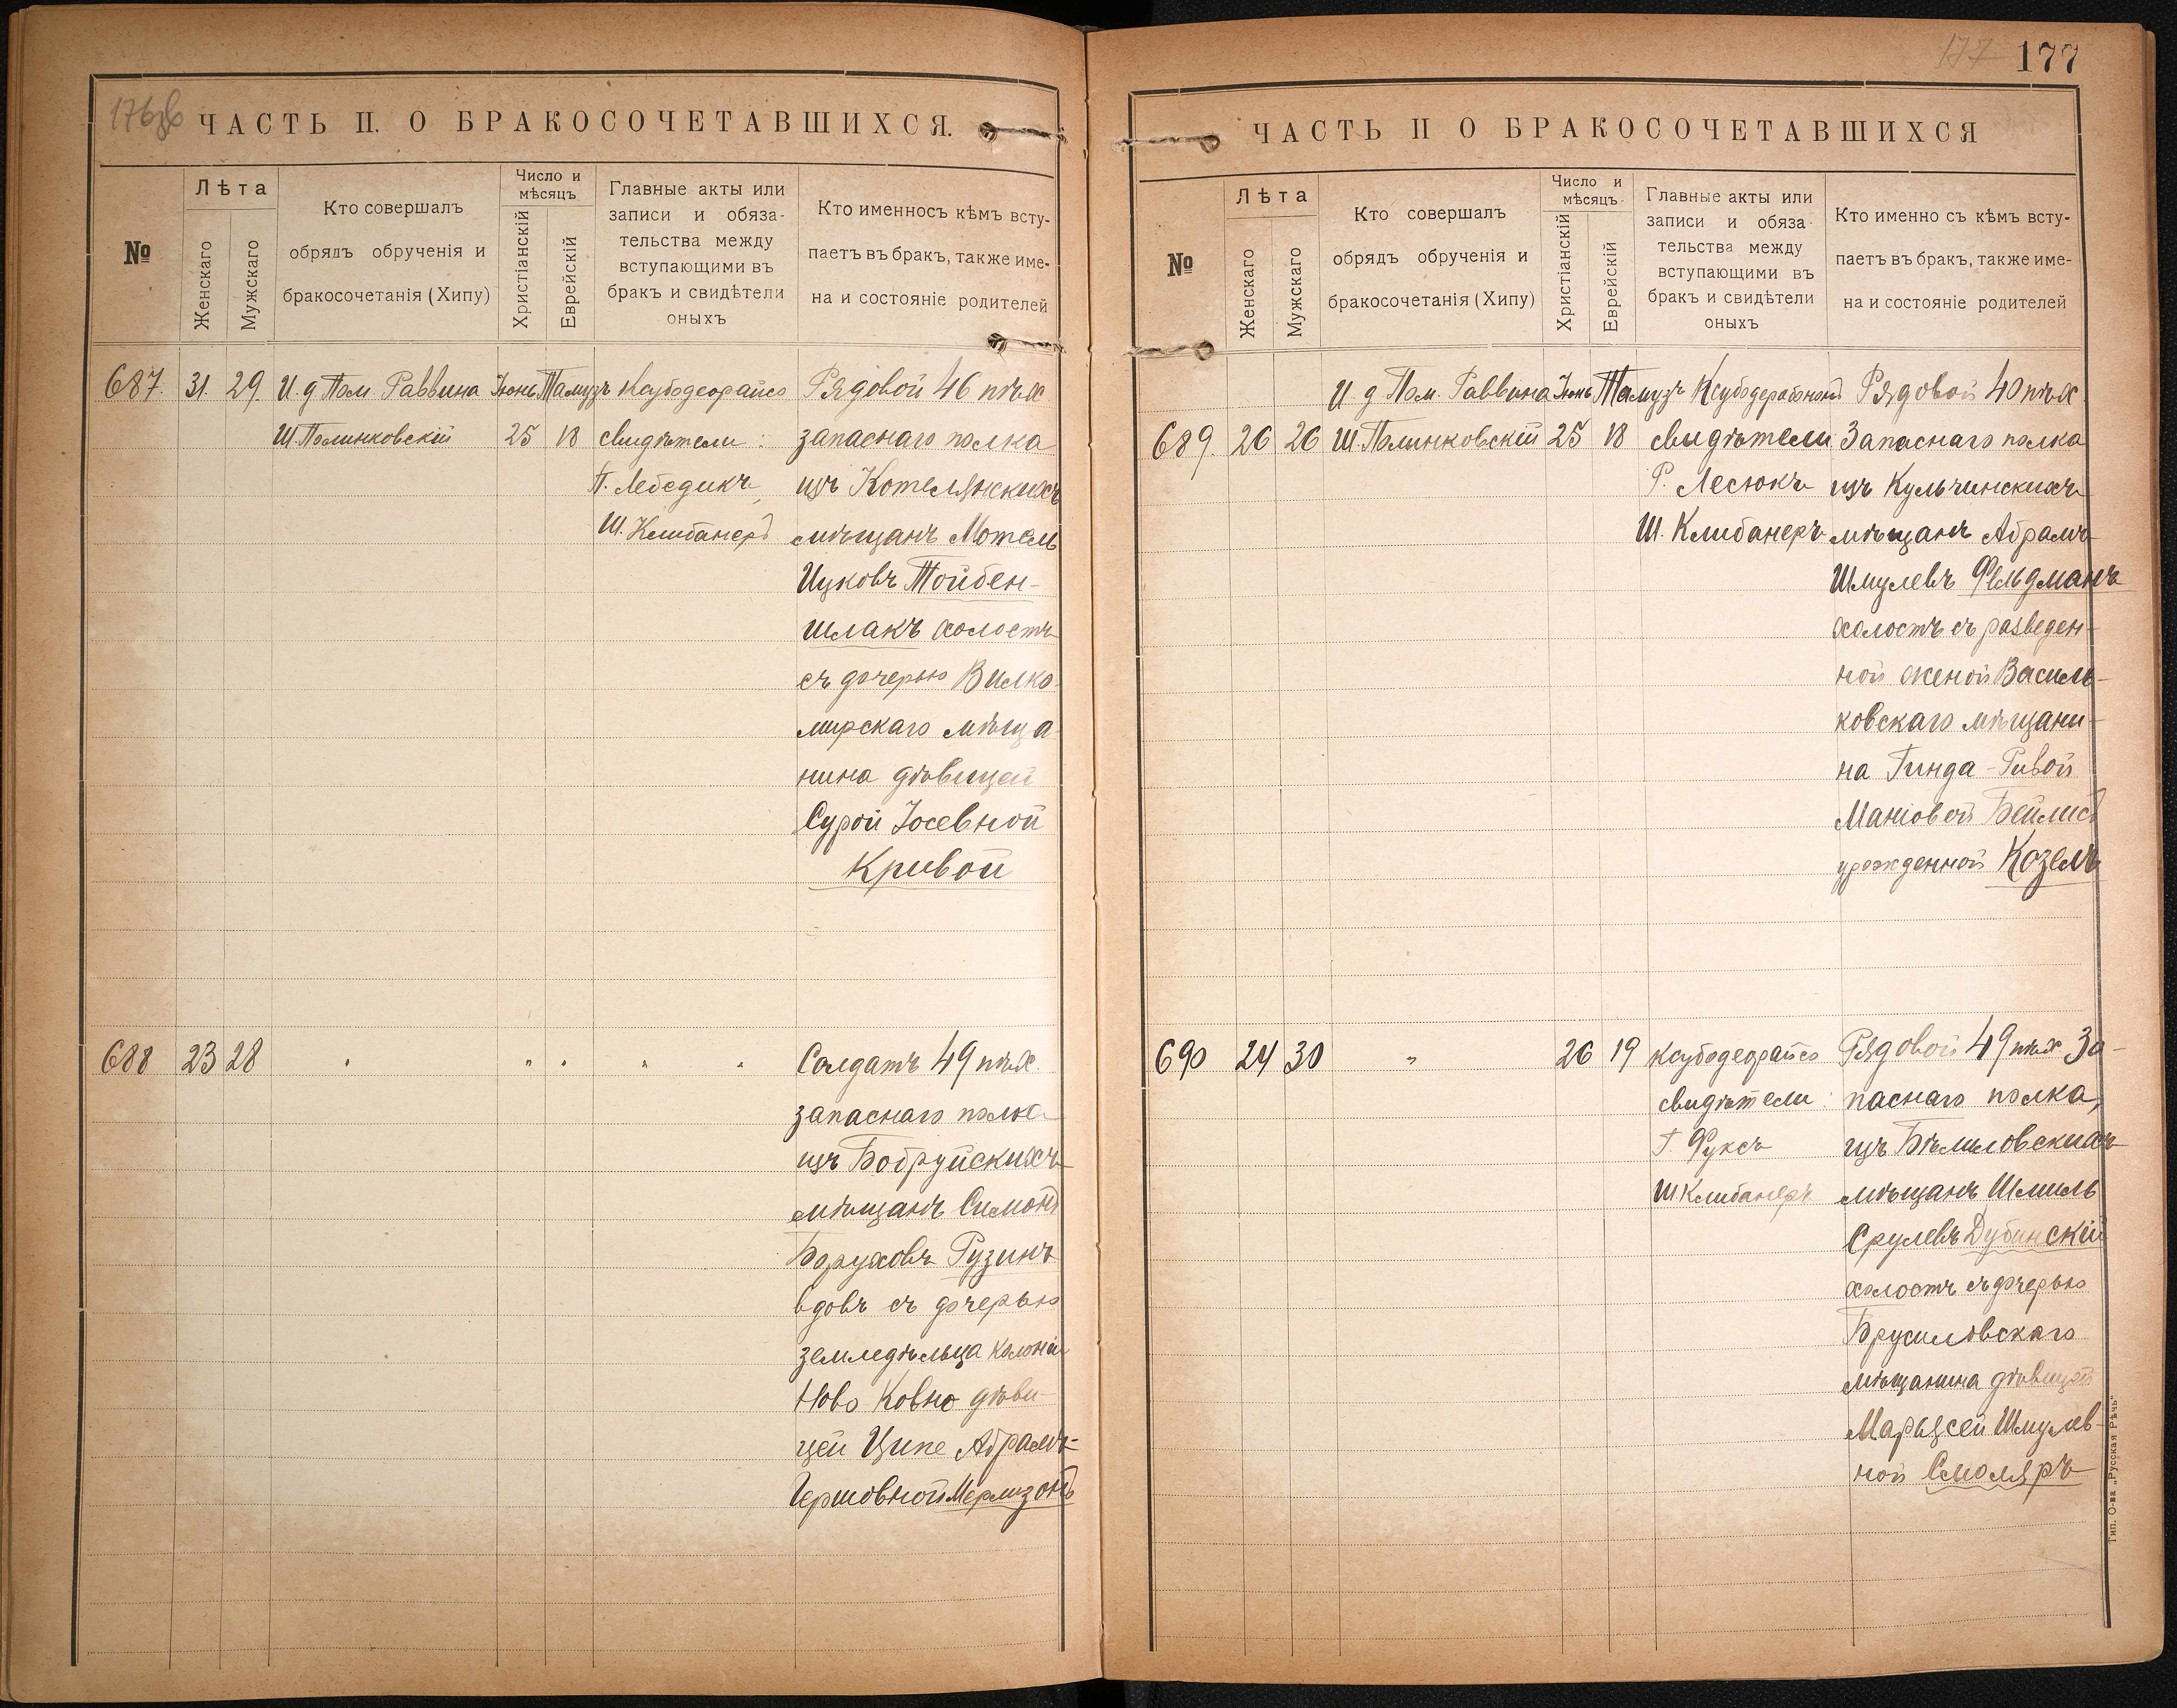 176об
ЧАСТЬ II. О БРАКОСОЧЕТАВШИХСЯ.
№
Лѣта
Женскаго
Мужскаго
Кто совершалъ
обрядъ обрученія и
бракосочетанія (Хипу)
Число и
мѣсяцъ
Христіанскій
Еврейскій
Главные акты или
записи и обяза-
тельства между
вступающими въ
бракъ и свидѣтели
оныхъ
Кто именносъ кѣмъ всту-
паетъ въ бракъ, также име-
на и состояніе родителей
687. 31. 29. И. д Пом. Раввина Іюнь Тамузъ Ксубодеорайсо Рядовой 46 пѣх
Ш. Полинковскій 25 18 свидѣтели: запаснаго полка
П. Лебедикъ, изъ Котелянскихъ
Ш. Клибанеръ мѣщанъ Мотель
Ицковъ Тойбен-
шлакъ холостъ
съ дочерью Вилко-
мирскаго мѣща-
нина дѣвицей
Сурой Іосевной
Кривой
688 23 28 " " " " " Солдатъ 49 пѣх.
запаснаго полка
изъ Бобруйскихъ
мѣщанъ Симонъ
Боруховъ Рузинъ
вдовъ съ дочерью
земледѣльца колоніи
Ново Ковно дѣви-
цей Ципе Абрамъ-
Гершовной Мерлизонъ
177 177
ЧАСТЬ II О БРАКОСОЧЕТАВШИХСЯ
№
Лѣта
Женскаго
Мужскаго
Кто совершалъ
обрядъ обрученія и
бракосочетанія (Хипу)
Число и
мѣсяцъ
Христіанскій
Еврейскій
Главные акты или
записи и обяза-
тельства между
вступающими въ
бракъ и свидѣтели
оныхъ
Кто именно съ кѣмъ всту-
паетъ въ бракъ, также име-
на и состояніе родителей
И. д Пом. Раввина Іюнь Тамузъ Рядовой 40 пѣх
689. 26 26 Ш. Полинковскій 25 18 свидѣтели Запаснаго полка
Р. Лесюкъ изъ Кульчинскихъ
Ш. Клибанеръ мѣщанъ Абрамъ
Шмулевъ Фельдманъ
холостъ съ разведен-
ной женой Василь-
ковскаго мѣщани-
на Гинда-Ривой
Маніовой Бейлисъ
урожденной Козелъ
690 24 30 " 26 19 ксубодеорайсо Рядовой 49 пѣх За-
свидѣтели: паснаго полка,
Г. Фуксъ изъ Бѣлиловскихъ
Ш Клибанеръ мѣщанъ Шмиль
Срулевъ Дубинскій
холостъ съ дочерью
Брусиловскаго
мѣщанина дѣвицей
Марьясей Шмулев-
ной Смоляръ
Тип. О-ва „Русская Рѣчь"